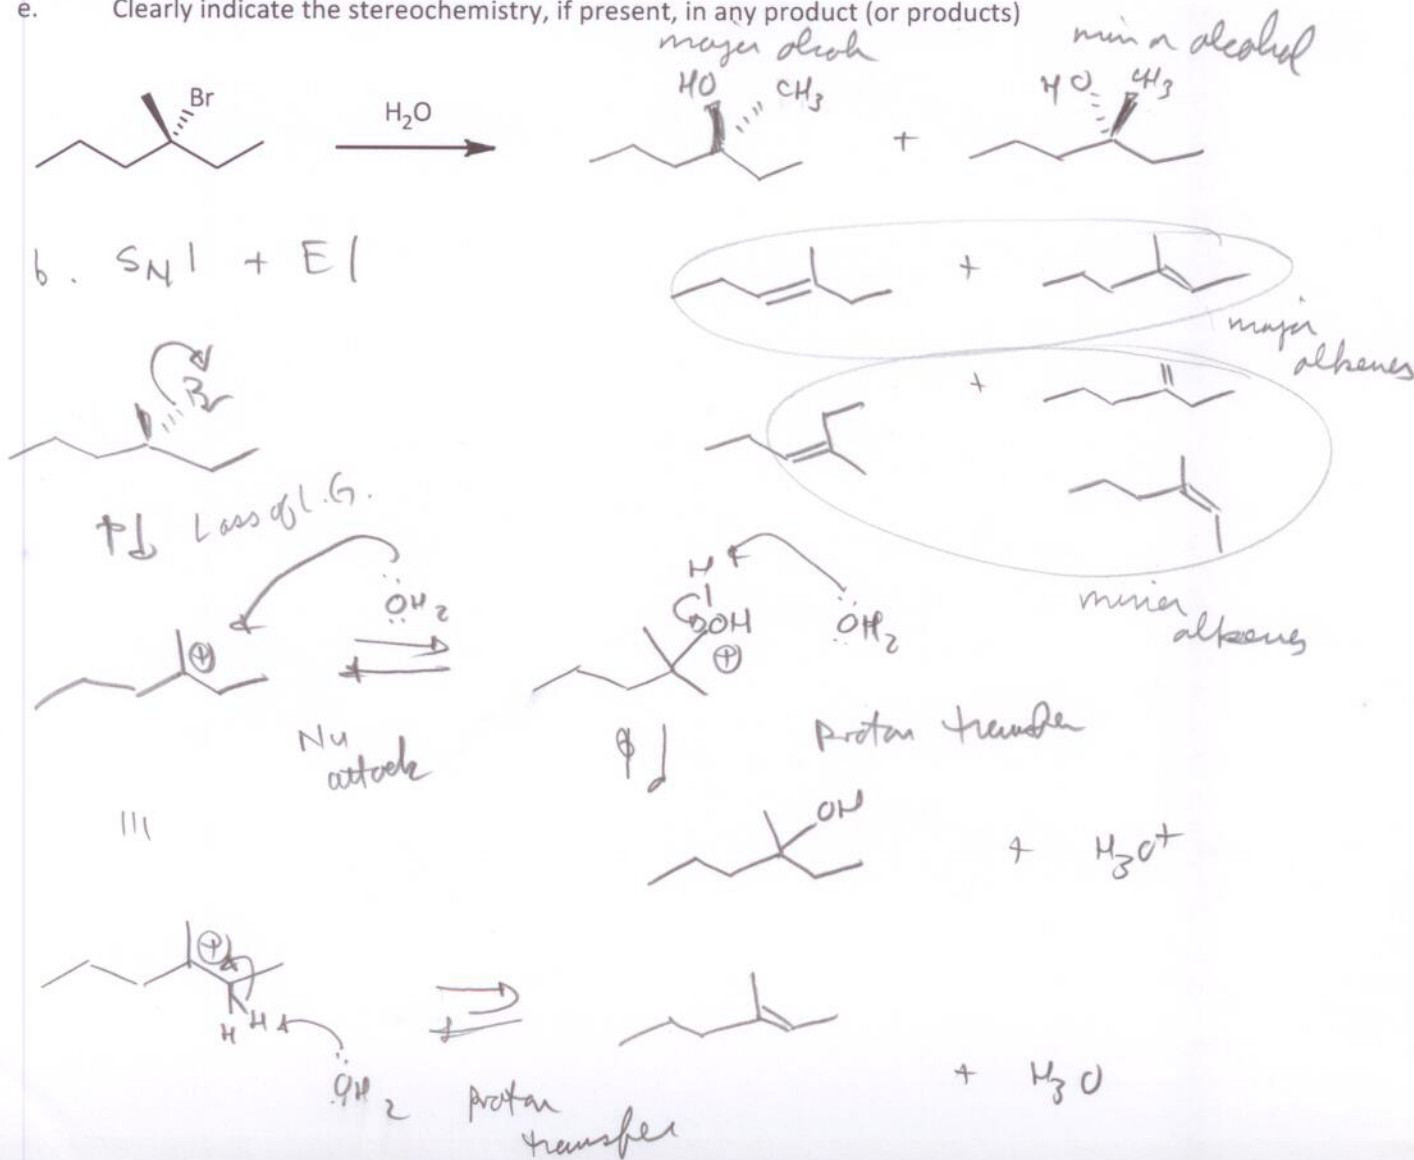 e. Clearly indicate the stereochemistry, if present, in any product (or products)
major alcoh
minor alcohol
HO CH3
HO CH3
Br
H2O
+
b. SN1 + E1
+
major
alkenes
Br
+
Loss of L.G.
H
ÖH2
OH
ÖH2
minor
alkenes
⊕
⊕
Nu
attack
Proton transfer
OH
+ H3O+
⊕
H H
ÖH2
proton
transfer
+ H3O